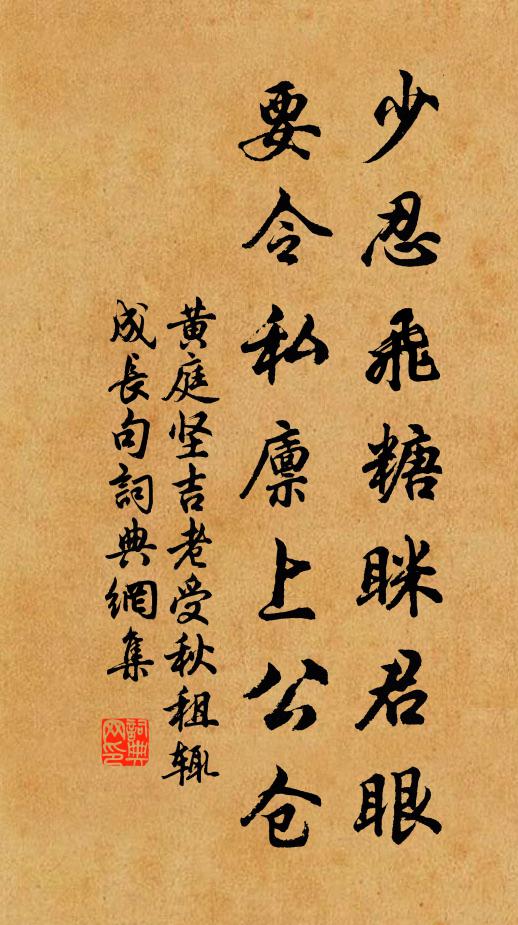 少忍飛糖眯君眼
要令私廪上公仓
黄庭坚吉老受秋租辄
成长句詞典網集
詞典网印